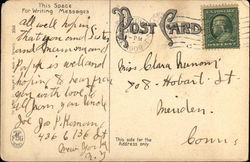 This Space
For Writing Messages
POST CARD
all well hoping
that you and Sister
and
Papa is well and
hoping to hear from
you with love to
all from your Uncle
Joe Jos P.
436 6 136 St
New York
N.Y.
Miss Clara
508 - Hobart St
Meriden
Conn.
This side for the
Address only